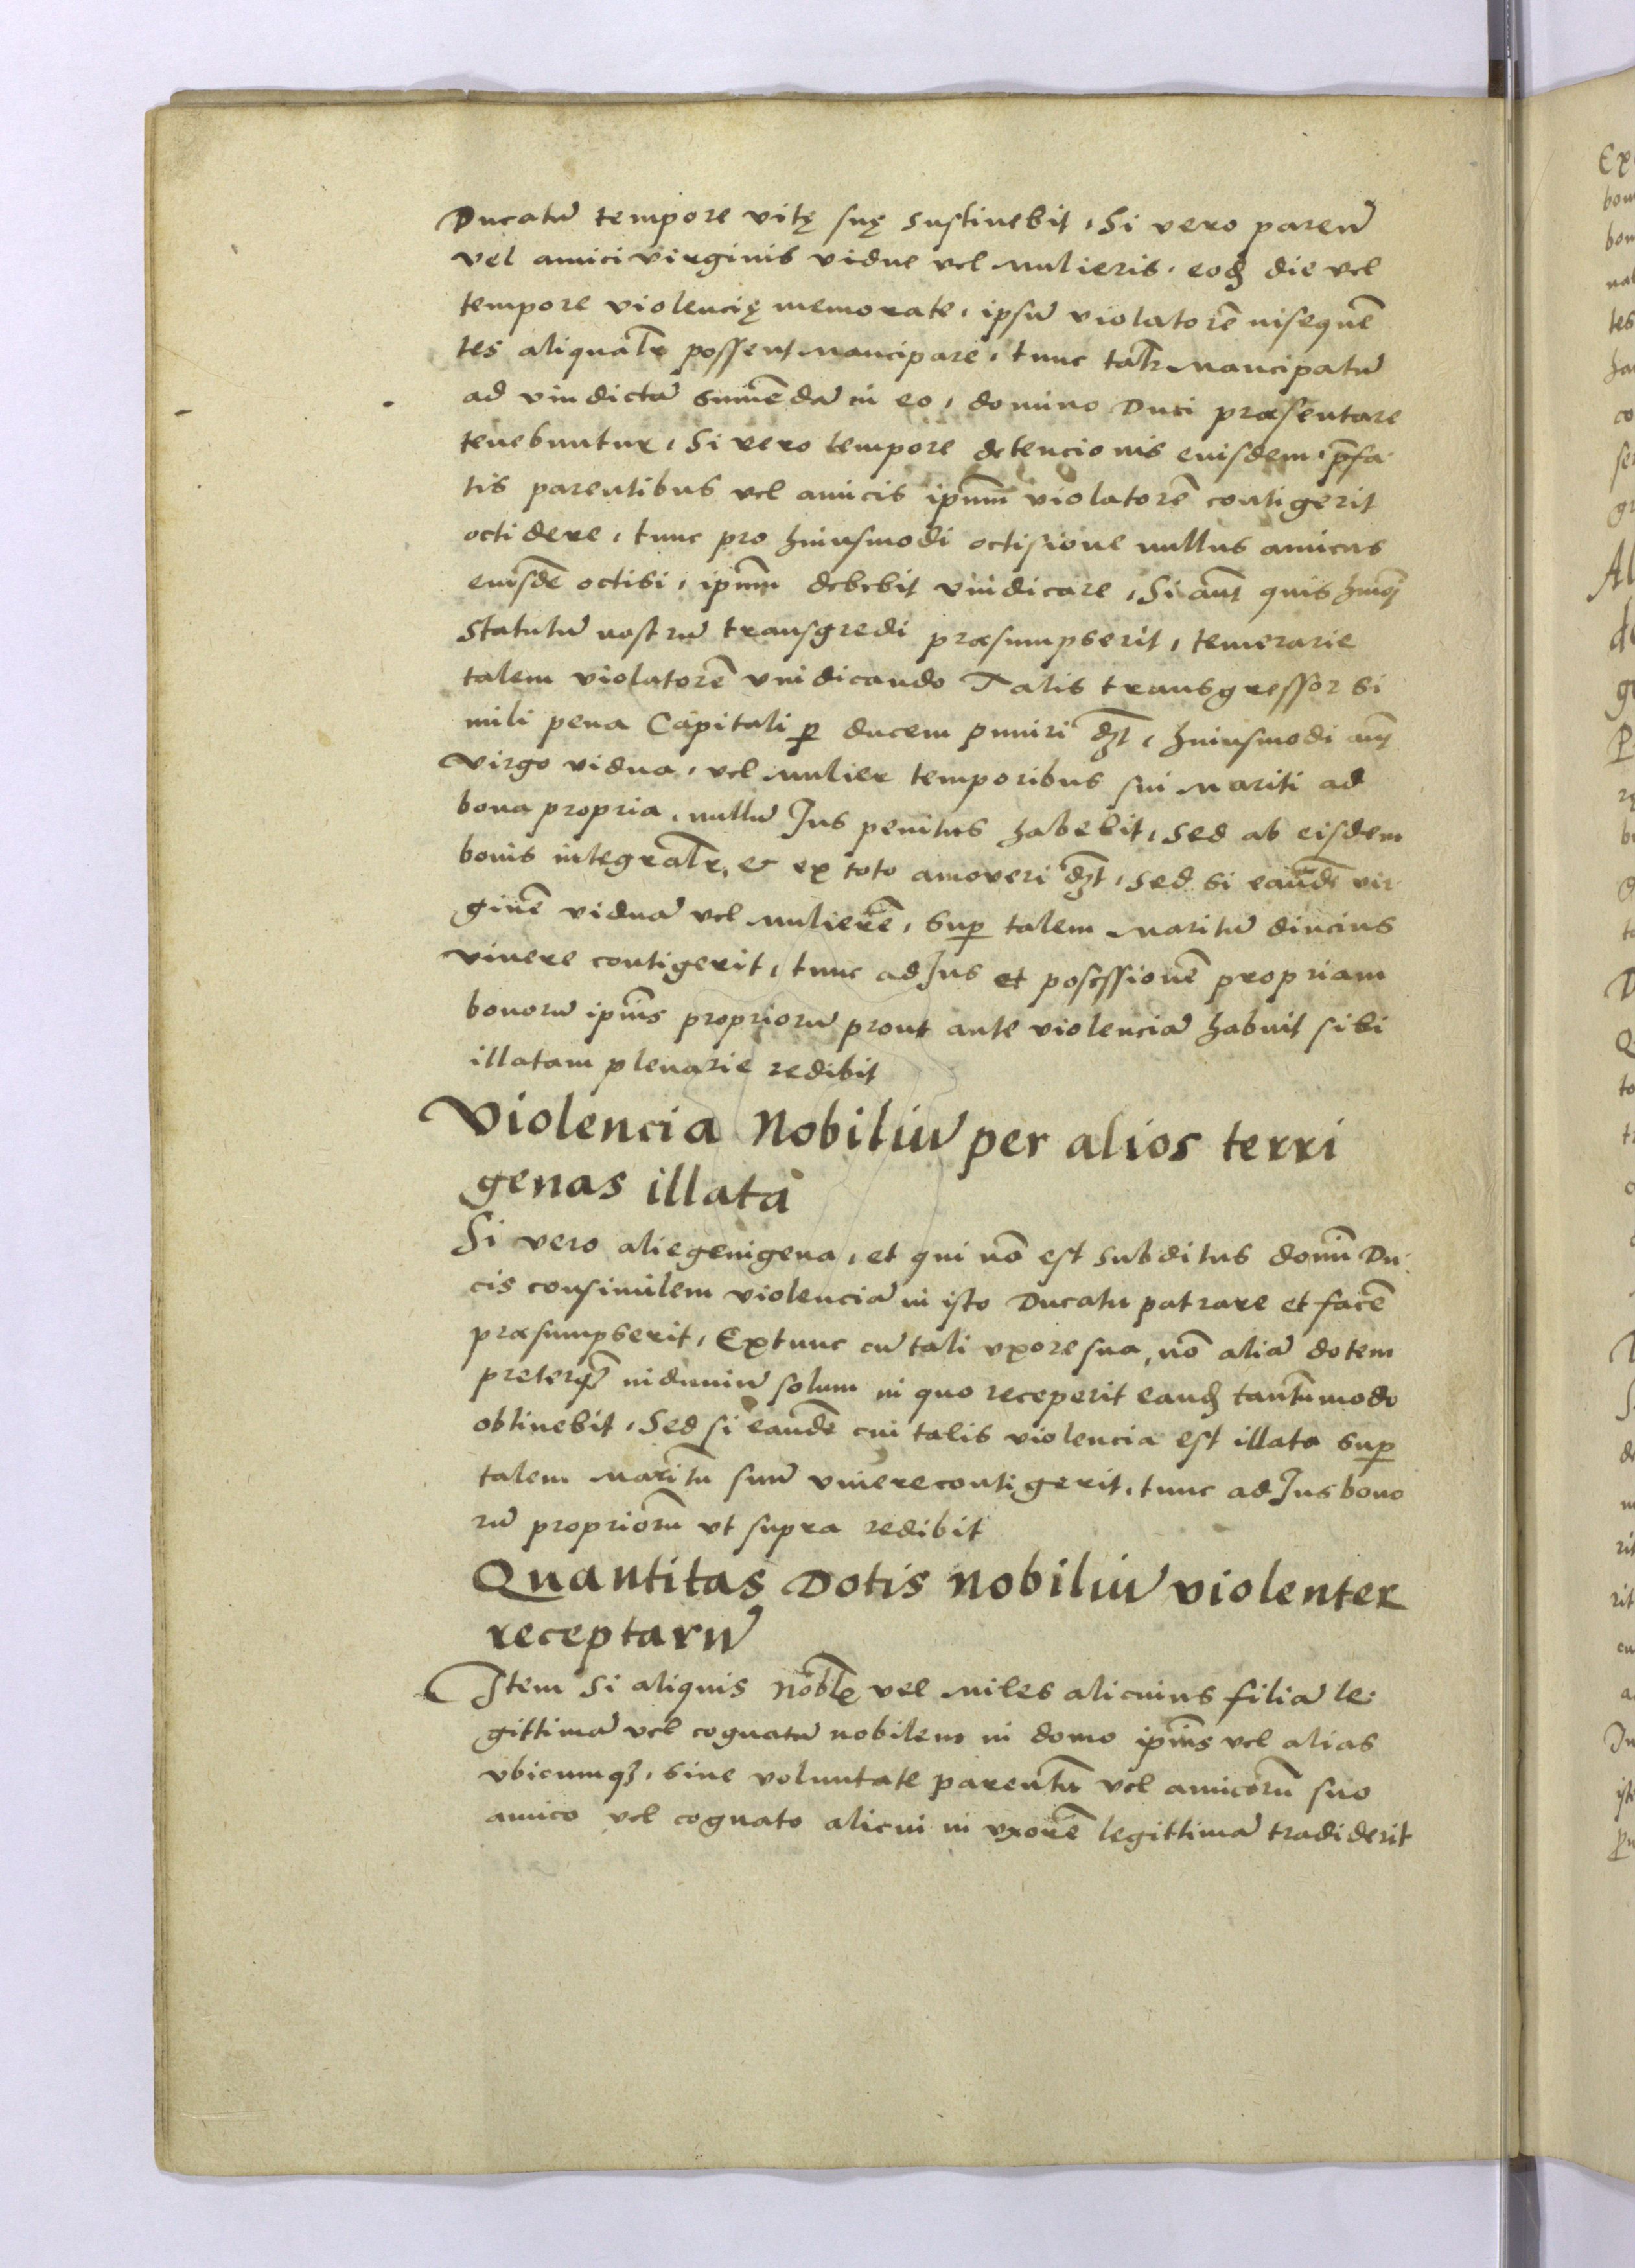 Ducatū tempore vitę suę sustinebit, Si vero parentū
vel amici virginis vidue vel mulieris, eodȝ die vel
tempore violencię memorate, ipsū violatorē insequēn
tes aliqualr̄ possent mancipare, tunc talr̄ mancipatū
ad vindictā sumēdā in eo, domino Duci præsentare
tenebuntur, Si vero tempore detencionis eiusdem, p̄fa
tis parentibus vel amicis ip̄um violatorē contigerit
occidere, tunc pro huiusmodi occisione nullus amicus
eiusdē occisi, ip̄um debebit vindicare, Si aūt quis hmōi
statutū nostrū transgredi præsumpserit, temerarie
talem violatorē vindicando Talis transgressor si
mili pena Capitali ꝑ ducem puniri dȝt, huiusmodi aūt
virgo vidua, vel mulier temporibus sui mariti ad
bona propria, nullū Jus penitus habebit, Sed ab eisdem
bonis integralr̄, & ex toto amoveri dȝt, Sed si eandē vir
ginē viduā vel mulierē, sup̄ talem maritū diucius
vivere contigerit, tunc ad Jus et possessionē propriam
bonorū ip̄ius propriorū prout ante violenciā habuit sibi
illatam plenarie redibit
Violencia Nobiliū per alios terri
genas illata
Si vero aliegenigena, et qui nō est subditus domī Du
cis consimilem violenciā in isto Ducatu patrare et facē
præsumpserit, Extunc cū tali uxore sua, nō aliā dotem
preterqȝ induviū solum in quo receperit eandȝ tantūmodo
obtinebit, Sed si eandē cui talis violencia est illata sup̄
talem maritū suū vivere contigerit, tunc ad Jus bono
rū propriorū vt supra redibit
Quantitas Dotis nobiliū violenter
receptarū
Item Si aliquis noble vel miles alicuius filiā le
gittimā vel cognatā nobilem in domo ip̄ius vel alias
vbicumqȝ, sine voluntate parentū vel amicorū suo
amico vel cognato alicui in vxorē legittimā tradiderit